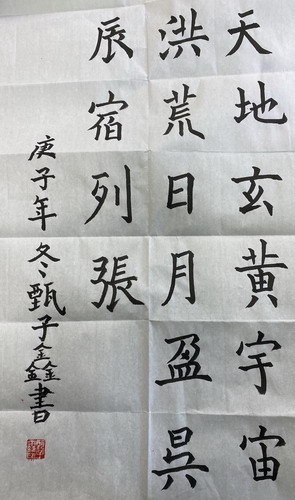 天地玄黄宇宙
洪荒日月盈昗
辰宿列張
庚子年冬甄子鑫書